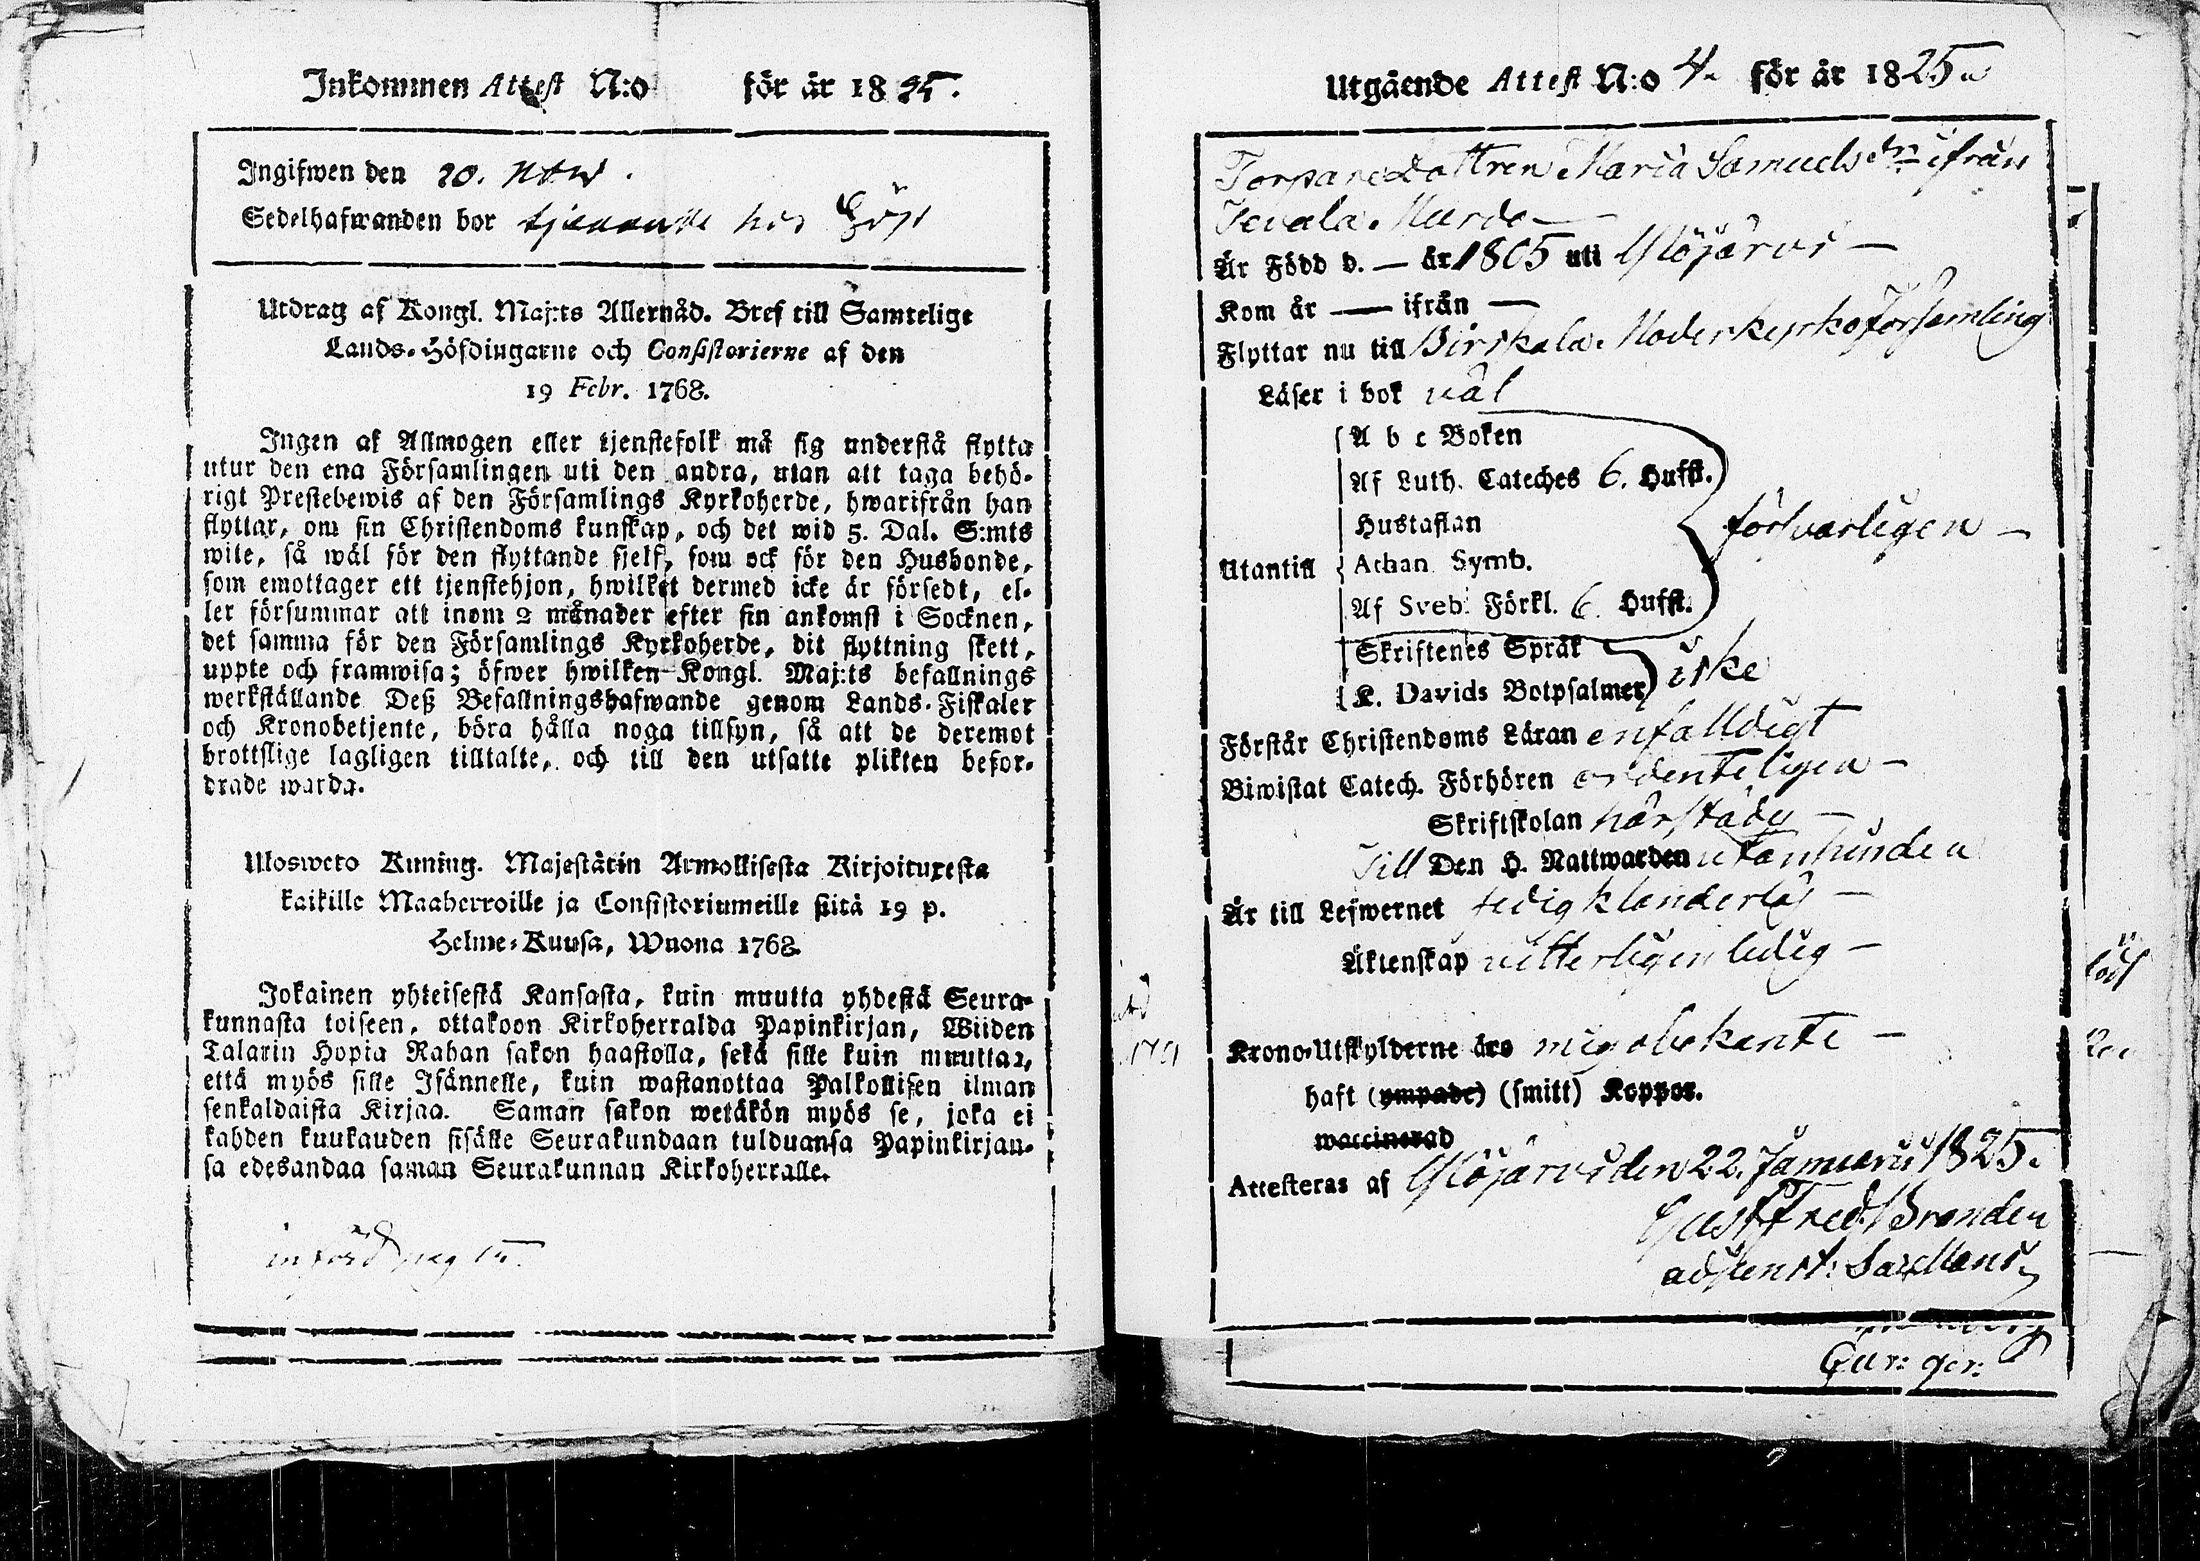 Inkommen Attest N:o för år 1825.
Ingifwen den 20. Nov.
Sedelhafwanden bor tjenande hos
Utdrag af Kongl. Maj:ts Allernåd. Bref till Samtelige
Lands-Höfdingarne och Consistorierne af den
19 Febr. 1768.
Ingen af Allmogen eller tjenstefolk må sig understå flytta
utur den ena Församlingen uti den andra, utan att taga behö-
rigt Prestebewis af den Församlings Kyrkoherde, hwarifrån han
flyttar, om sin Christendoms kunskap, och det wid 5. Dal. S:mts
wite, så wäl för den flyttande sjelf, som ock för den Husbonde,
som emottager ett tjenstehjon, hwilket dermed icke är försedt, el-
ler försummar att inom 2 månader efter sin ankomst i Socknen,
det samma för den Församlings Kyrkoherde, dit flyttning skett,
uppte och framwisa; öfwer hwilken Kongl. Maj:ts befallnings
werkställande Deß Befallningshafwande genom Lands-Fiskaler
och Kronobetjente, böra hålla noga tillsyn, så att de deremot
brottslige lagligen tilltalte, och till den utsatte plikten befor-
drade warda.
Ulosweto Kuning. Majestätin Armollisesta Kirjoituxesta
kaikille Maaherroille ja Consistoriumeille siitä 19 p.
Helme-Kuusa, Wuona 1768.
Jokainen yhteisestä Kansasta, kuin muutta yhdestä Seura-
kunnasta toiseen, ottakoon Kirkoherralda Papinkirjan, Wiiden
Talarin Hopia Rahan sakon haastolla, sekä sille kuin muuttaa,
että myös sille Isännelle, kuin wastanottaa Palkollisen ilman
senkaldaista Kirjaa. Saman sakon wetäkön myös se, joka ei
kahden kuukauden sisälle Seurakundaan tulduansa Papinkirjan-
sa edesandaa saman Seurakunnan Kirkoherralle.
införd pag
Utgående Attest N:o 4. för år 1825.
Torparedottren Maria Samuelsdr ifrån
Är Född d. — år 1805 uti Ylöjärvi —
Kom år — ifrån —
Flyttar nu till Birkala Moderkyrkoförsamling
Läser i bok väl
A b c Boken
Af Luth. Cateches 6. Hufst.
Hustaflan
försvarligen —
Utantill
Athan. Symb.
Af Sveb. Förkl. 6. Hufst.
Skriftenes Språk
icke
K. Davids Botpsalmer
Förstår Christendoms Läran enfalldigt
Biwistat Catech. Förhören ordenteligen —
Skriftskolan härstädes —
Till Den H. Nattwarden utan hinder
Är till Lefwernet klanderlös —
Äktenskap vitterligen ledig —
Krono-Utskylderne äro mig obekante —
haft (ympade) (smitt) Koppor.
waccinerad
Attesteras af Ylöjärvi den 22. Januarii 1825.
Gust. Fred. Branden
adjienst: Sacellani